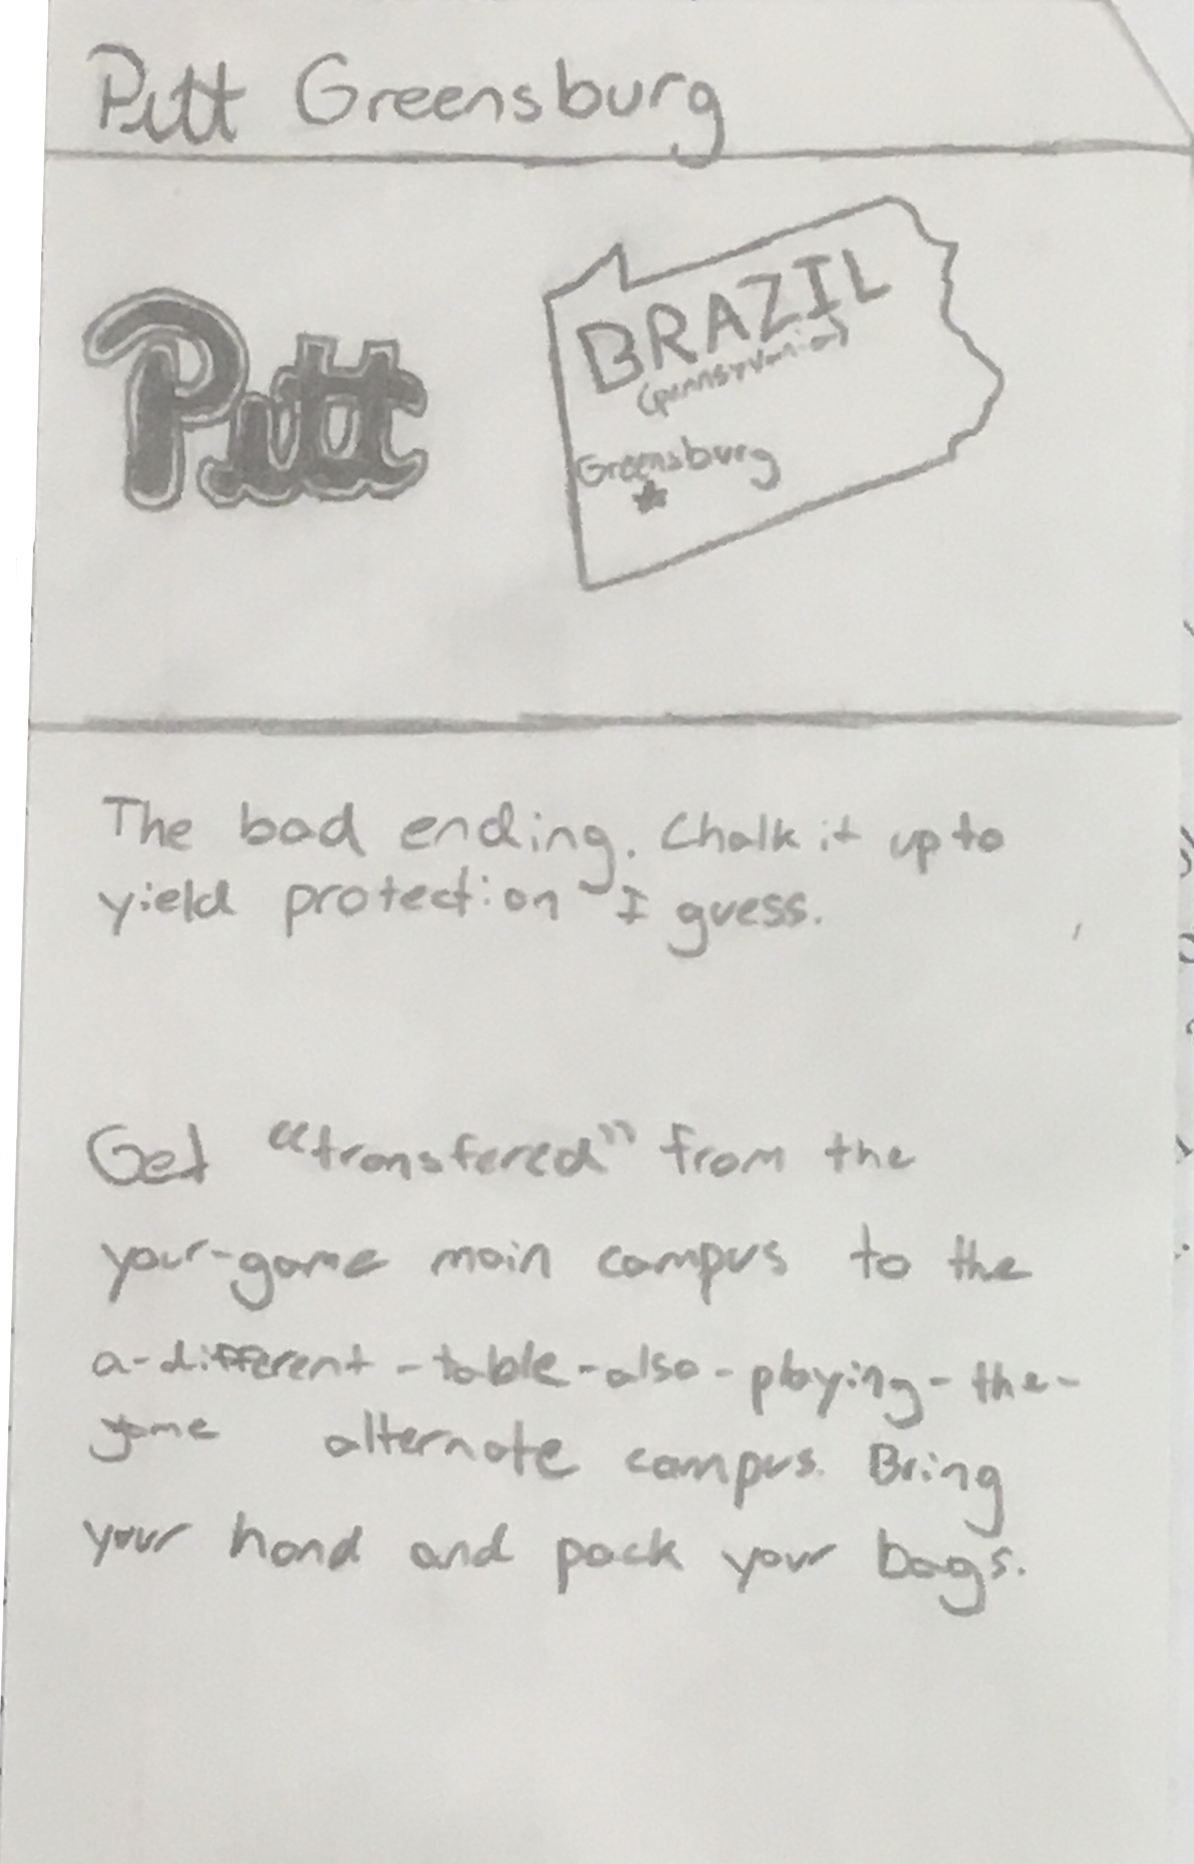 Pitt Greensburg
Pitt
BRAZIL
(pennsylvania)
Greensburg
The bad ending. Chalk it up to
yield protection I guess.
Get "transfered" from the
your-game main campus to the
a-different-table-also-playing-the-
game alternate campus. Bring
your hand and pack your bags.